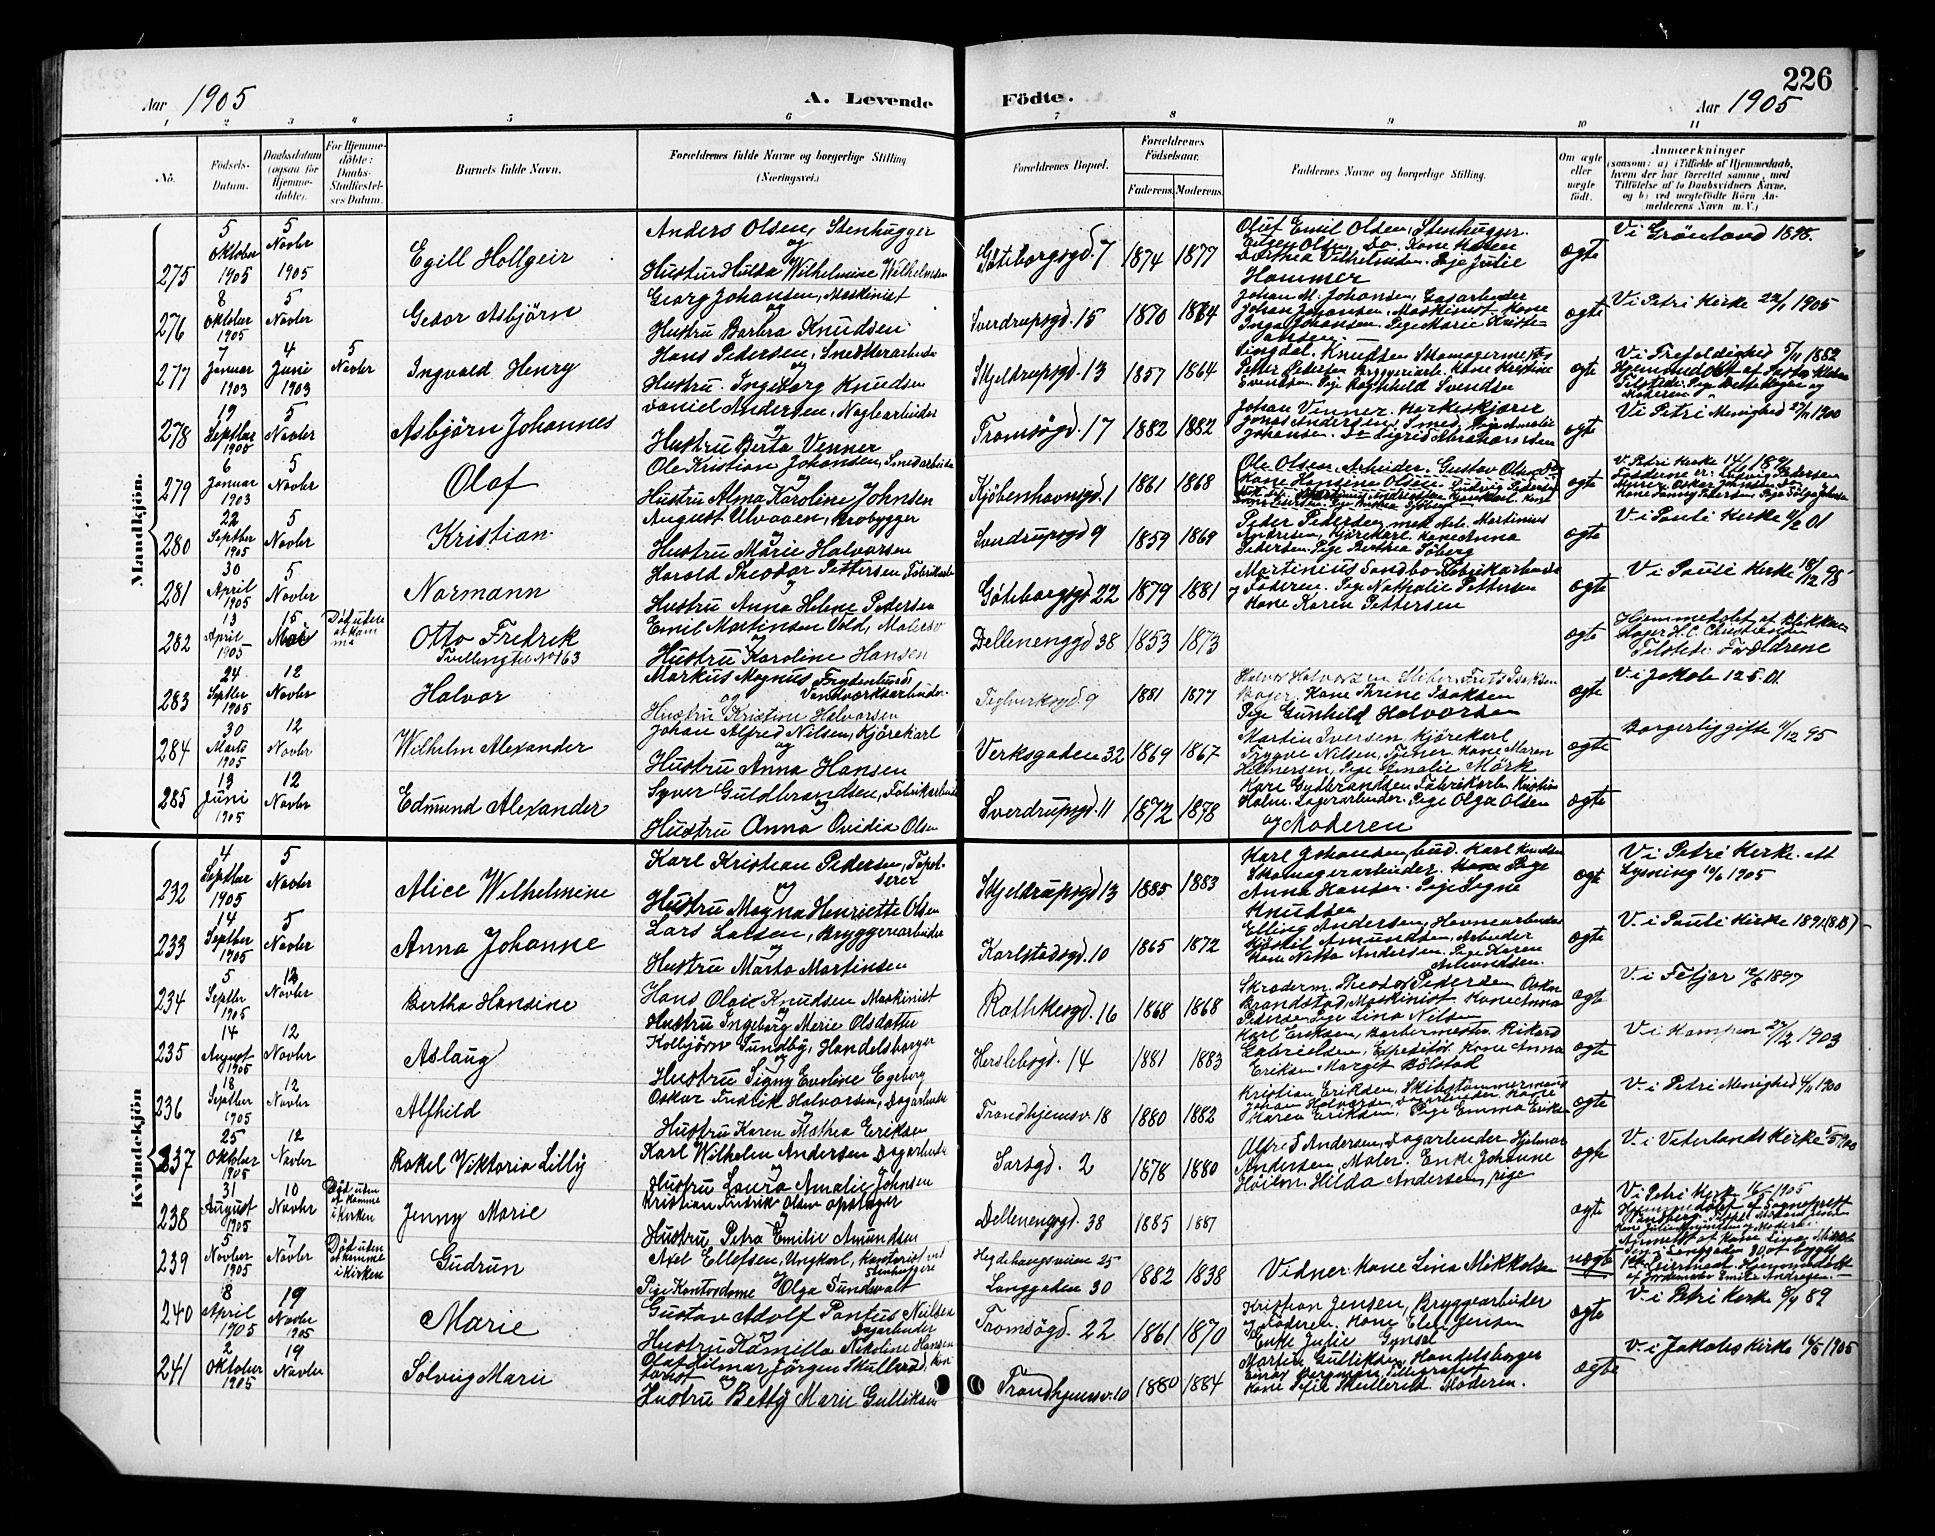 226
Aar 1905
A. Levende Födte.
Aar 1905
1 2 3 4 5 6 7 8 9 10 11
No.
Födsels-Datum.
Daabsdatum (ogsaa for Hjemme-döbte).
For Hjemme-döbte: Daabs-Stadfæstel-ses Datum.
Barnets fulde Navn.
Forældrenes fulde Navne og borgerlige Stilling (Næringsvei.)
Forældrenes Bopæl.
Forældrenes Födselsaar.
Faderens. Moderens.
Faddernes Navne og borgerlige Stilling.
Om ægte eller uægte födt.
Anmærkninger
(saasom: a) i Tilfælde af Hjemmedaab, hvem der har forrettet samme, med Tilföielse af to Daabsvidners Navne, og b) ved uægtefödte Börn An-melderens Navn m. V.)
Mandkjön.
275 5 Oktober 1905 5 Novbr 1905 Egill Hollgeir
Anders Olsen, Stenhugger og Hustru Hulda Wilhelmine Wilhelmsen
Göteborgsgd 7 1874 1877
Oluf Emil Olsen, Stenhugger. Pige Julie Hammer
ægte Vi Grönland 1898.
276 8 Oktober 1905 5 Novbr Asbjörn
Georg Johansen, Maskinist og Hustru Barbra Knudsen
Sverdrupsgd. 15 1870 1864
Johan M. Johansen, Gasarbeider Johan Johansen, Maskinist. Kone Inga Johansen. Pige Marie
ægte Vi Petri Kirke 22/1 1905
277 7 Januar 1903 4 Juni 1903 5 Novbr Ingvald Henry
Hans Pedersen, og Hustru Ingeborg Knudsen
Skjeldrupsgd. 13 1857 1864
Knutsen Petter Pedersen Kone Kristine Svendsen, Pige Ragnhild Svendsen
ægte Vi Trefoldighed 5/11 1882
278 19 Septbr 1905 5 Novbr Asbjörn Johannes
Daniel Andersen, Naglearbeider og Hustru Berta Venner
Tromsögd. 17 1882 1882
Johan Venner. Jonas Andersen, Smed, Pige Amalie Johansen.
ægte Vi Petri Menighed 1900
279 6 Januar 1903 5 Novbr Olaf
Ole Kristian Johansen, og Hustru Alma Karoline Johnsen
Kjöbenhavnsgd. 1 1861 1868
Ole Olsen, Arbeider. Gustav Olsen Kone Hansine Olsen.
ægte V. Petri Kirke
280 22 Septbr 1905 5 Novbr Kristian
August Ulvaaen, Brobygger og Hustru Marie Halvorsen
Sverdrupsgd 9 1859 1869
Peder Pedersen, Martinius Andersen, Kjörekarl. Kone Anna Pedersen. Pige Berthea Söberg
ægte Vi Pauli Kirke 01
281 30 April 1905 5 Novbr Normann
Harold Theodor Pettersen og Hustru Anna Helene Pedersen
Göteborgsgd 22 1879 1881
Martinius Sandbo Fabrikarbeid og Faderen. Pige Nathalie Pettersen Kone Karen Pettersen
ægte V i Pauli Kirke 18/12 98
282 13 April 1905 15 Mai Död uden at komme
Otto Fredrik Tvilling til No 163
Emil Martinsen Vold, og Hustru Karoline Hansen
Dellenenggd 38 1853 1873
ægte Hjemmedöbt af H. C. Tilstede: Forældrene
283 24 Septbr 1905 12 Novbr Halvor
Markus Magnus Frydenlund, Vandværksarbeider. og Hustru Kristine Halvorsen
Teglverksgd. 9 1881 1877
Halvor Halvorsen Sliber, Isaksen Kone Thrine Isaksen Pige Gunhild Halvorsen
ægte Vi Jakob 12.5.01.
284 30 Marts 1905 12 Novbr Wilhelm Alexander
Johan Alfred Nilsen, Kjörekarl og Hustru Anna Hansen
Verksgaden 32 1869 1867
Martin Iversen, Kjörekarl Trygve Nilsen, Kone Maren Helmersen, Pige Amalie Mörk
ægte Borgerlig gifte 11/12 95
285 13 Juni 1905 12 Novbr Edmund Alexander
Syver Guldbrandsen, Fabrikarbeid og Hustru Anna Ovidia Olsen
Sverdrupsgd. 11 1872 1878
Kari Gudbrandsen Fabrikarb. Kristian Holm. Lagerarbeider. Pige Olga Olsen og Moderen
ægte
Kvindekjön
232 4 Septbr 1905 5 Novbr Alice Wilhelmine
Karl Kristian Pedersen, Tapetserer og Hustru Magna Henriette Olsen
Skjeldrupsgd 13 1885 1883
Karl Johansen, bud. Karl Knudsen Skomagerarbeider. Pige Anna Hansen. Pige Signe Knudsen
ægte V i Petri Kirke. ett Lysning 10/6 1905
233 14 Septbr 1905 5 Novbr Anna Johanne
Lars Larsen, Bryggeriarbeider og Hustru Marta Martinsen
Karlstadsgd. 10 1865 1872
Elling Andersen, Havnearbeider Kjöstil Amundsen, Arbeider Kone Netta Andersen. Pige Karen Amundsen.
ægte V. i Pauli Kirke 1891
234 5 Septbr 1905 12 Novbr Bertha Hansine
Hans Olai Knudsen Maskinist og Hustru Ingeborg Merie Olsdatter
Rathkesgd. 16 1868 1868
Skræderm. Theodor Pedersen Oskar Brandstad, Maskinist. Kone Anna Pedersen Pige Lina Nilsen
ægte V. i 1897
235 14 August 1905 12 Novbr Aslaug
Kolbjörn Sundby, Handelsborger og Hustru Signy Eveline Egeberg
Herslebsgd. 14 1881 1883
Karl Eriksen, Barbermester. Rikard Gabrielsen, Expeditör. Kone Anna Eriksen. Margit Bölstad
ægte V i Kampen 27/12 1903
236 18 Septbr 1905 12 Novbr Alfhild
Oskar Fredrik Halvorsen, Dagarbeide og Hustru Karen Mathea Eriksen
Trondhjemsv. 18 1880 1882
Kristian Eriksen, Skibstømmermand Johan Halvorsen, Dagarbeider. Kone Karen Eriksen, Pige Emma Eriksen
ægte V. i Petri Menighed 1900
237 25 Oktober 1905 12 Novbr Rakel Viktoria Lilly
Karl Wilhelm Andersen Dagarbeide og Hustru Laura Amalie Johnsen
Sarsgd. 2 1878 1880
Alfred Andersen, Dagarbeider Hjelmar Andersen, Maler. Enke Johanne Höilm, Hilda Andersen, pige
ægte V. i Vaterlands Kirke 1900
238 31 August 1905 10 Novbr Död uden at komme i Kirken Jenny Marie
Kristian Fredrik Olsen opstager og Hustru Petra Emilie Amundsen
Dellenenggd. 38 1885 1881
ægte V i Petri Kirke 1905 Hjemmedöbt af
239 5 Novber 1905 7 Novbr Död uden at komme i Kirken Gudrun
Axel Ellefsen, Ungkarl, Kontorist ved Stenhuggeri og Pige Kontordame Olga Sundwalt
Hegdehaugsveien 25 Langgaden 30 1882 1838
Vidner: Kone Lina Mikkelsen
uægte Anmeldt af Kone Lina Mikkelsen i Langgaden 30 Hjemmedöbt af Jordemoder Emilie Andresen.
240 8 April 1905 19 Novbr 1905 Marie
Gustav Adolf Pontus Neilsen Dagarbeider Hustru Kamilla Nikoline Hansen
Tromsögd. 22 1861 1870
Kristian Jensen, Bryggearbeider og Faderen. Kone Elen Jensen Enke Julie
ægte V. i Petri Kirke 8/9 89
241 2 Oktober 1905 19 Novbr Solveig Marie
Olaf Hilmar Jörgen Skullerud, Kontorist og Hustru Betty Marie Gulliksen
Trondhjemsv. 10 1880 1884
Martin Gulliksen, Handelsborger Einar Telegrafist Kone Skullerud Moderen.
ægte V. i Jakobs Kirke 16/5 1905